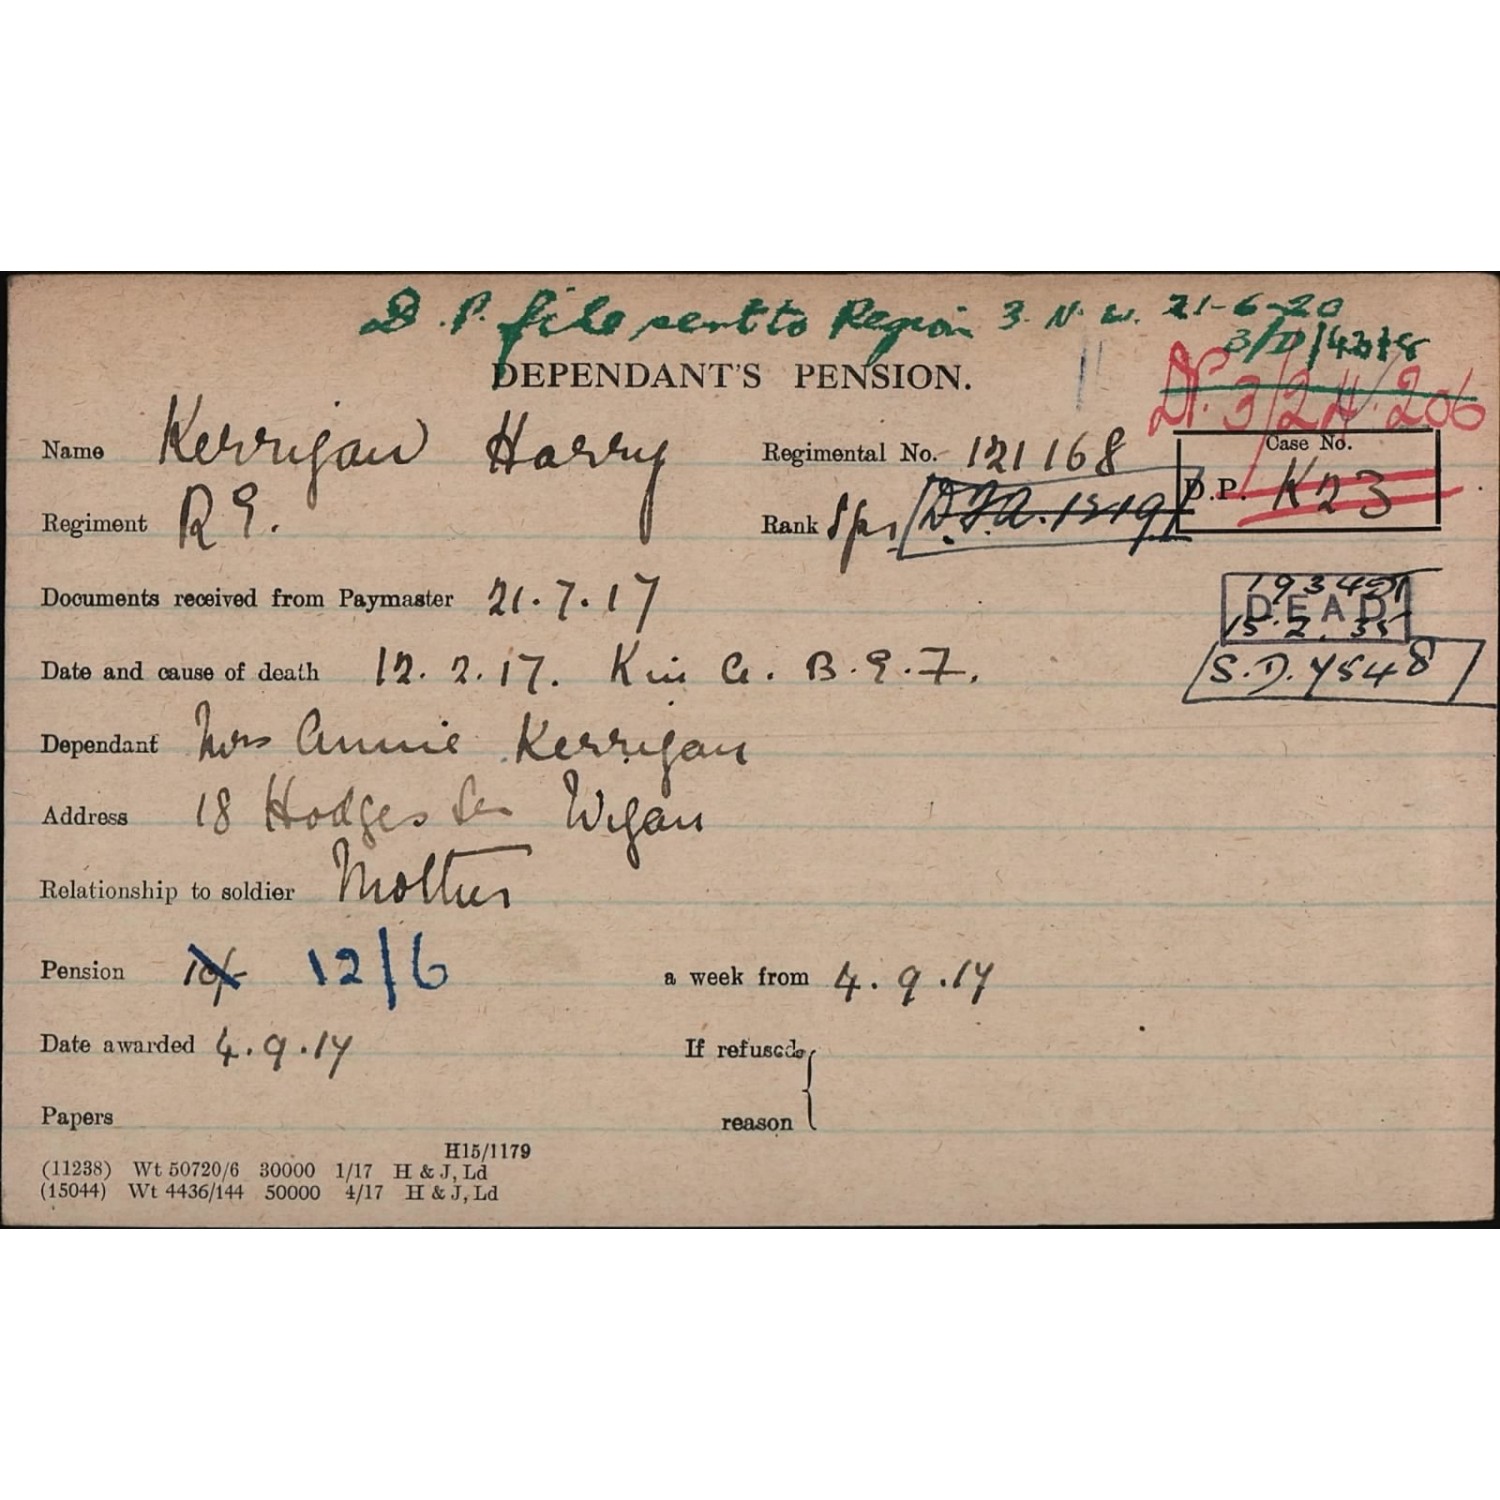 D.P. file sent to Region 3. N.W. 21-6-20
DEPENDANT'S PENSION.
DP. 3/2K. 206
Name Kerrigan Harry Regimental No. 121168 Case No.
D.P. K23
Regiment R.E. Rank Spr D.F.A. 1519
Documents received from Paymaster 21.7.17
DEAD
15.2.35
Date and cause of death 12.2.17. K in A. B.E.F. S.D. 7548
Dependant Mrs Annie Kerrigan
Address 18 Hodges Wigan
Relationship to soldier Mother
Pension 10/- 12/6 a week from 4.9.17
Date awarded 4.9.17 If refused
Papers reason
H15/1179
(11238) Wt 50720/6 30000 1/17 H & J, Ld
(15044) Wt 4436/144 50000 4/17 H & J, Ld